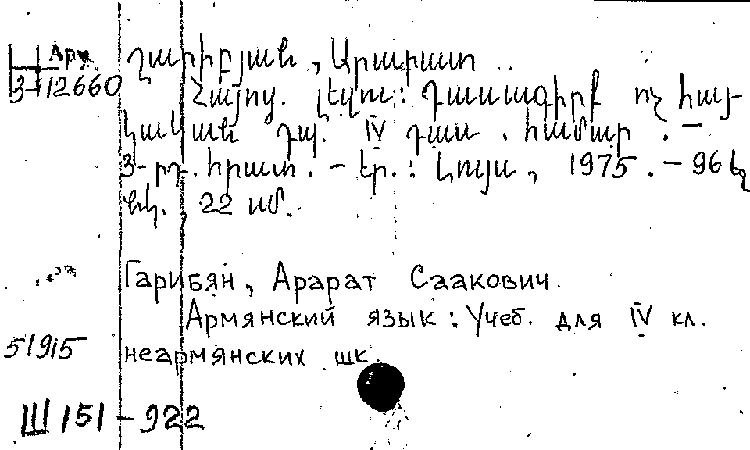 Арм
3-12660
Ղարիբյան, Արարատ ..
Հայոց. լեզու: Դասագիրք ոչ հայ-
կական դպ. IV դաս. համար. —
3-րդ. հրատ. — Եր.: Լույս, 1975. — 96 էջ
նկ. 22 սմ.
Гарибян, Арарат Саакович.
Армянский язык: Учеб. для IV кл.
51915 неармянских шк.
Ш151-922